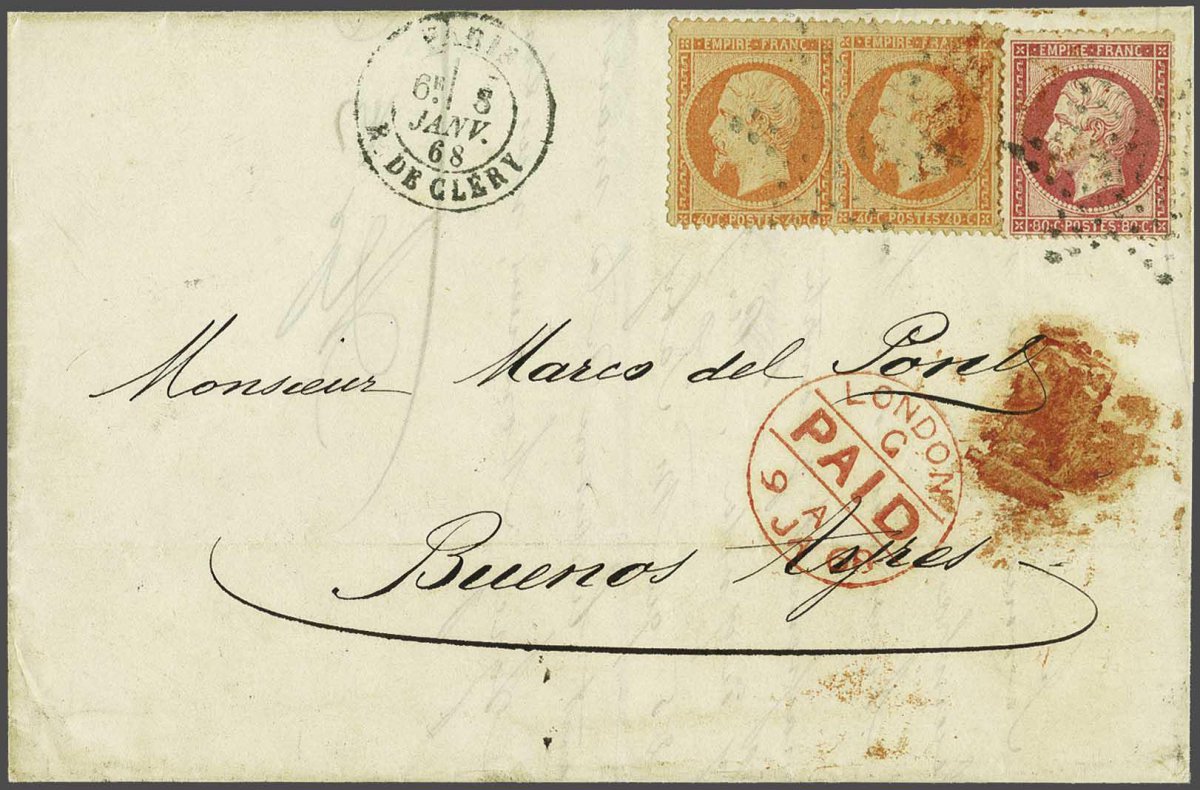 PARIS
6E 8
JANV.
68
R. DE CLÉRY
EMPIRE FRANC
40 C POSTES 40 C
EMPIRE FRANC
40 C POSTES 40 C
EMPIRE FRANC
80 C POSTES 80 C
Monsieur Marco del Pont
LONDON
C
PAID
A
9 JA 68
Buenos Ayres